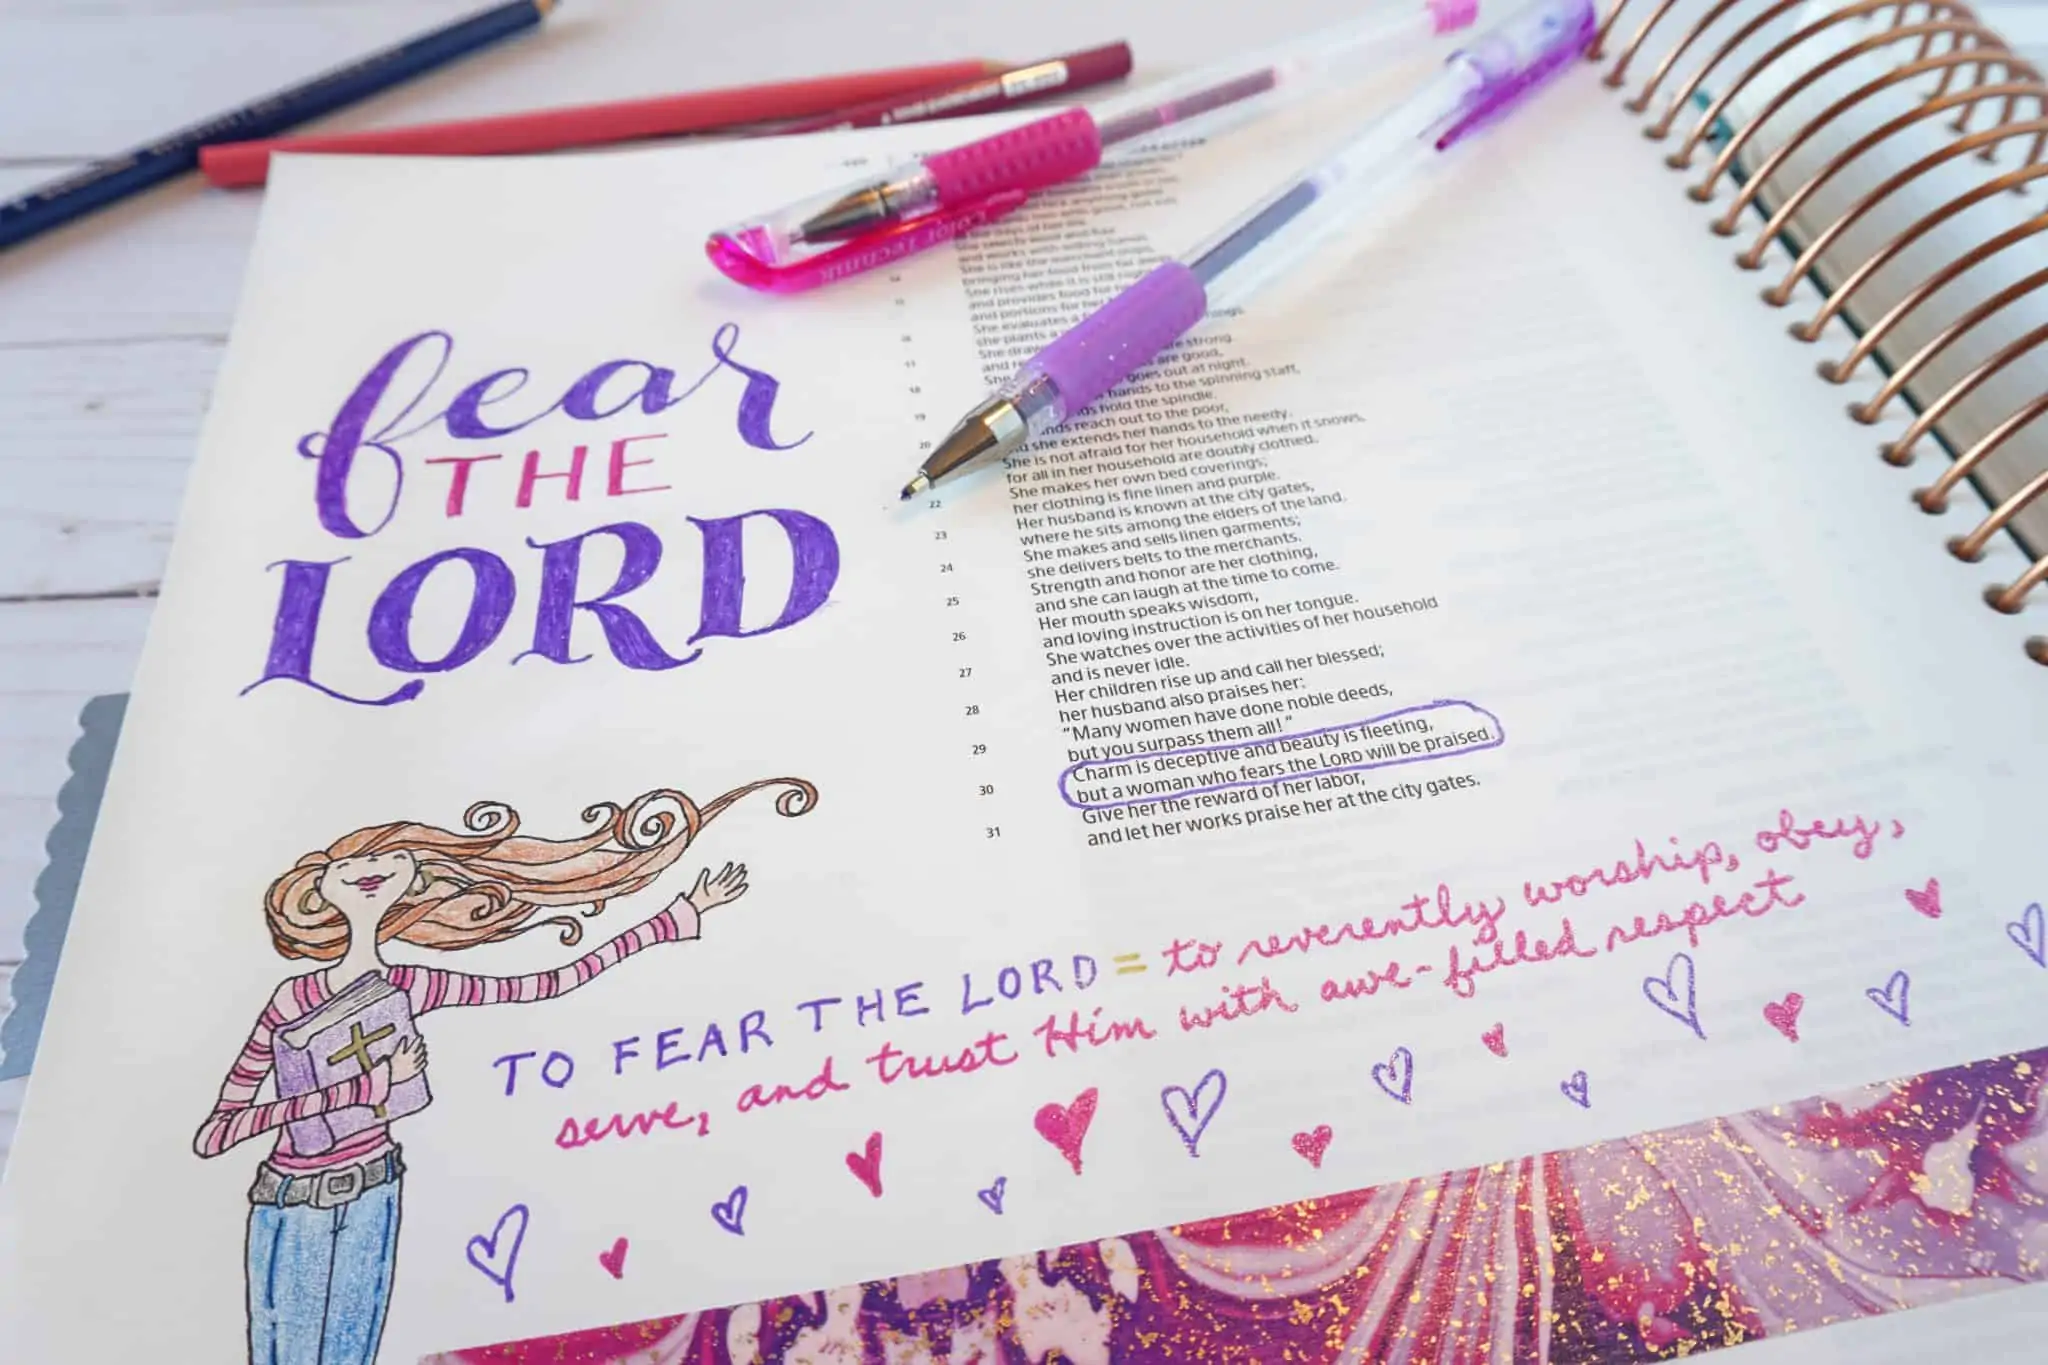 fear
THE
LORD
and works with willing hands.
She is like the merchant ships,
bringing her food from far away.
She rises while it is still night
and provides food for
and portions for her
She evaluates a
she plants a
She draws
are strong.
and
are good,
She
goes out at night.
hands to the spinning staff,
hold the spindle.
reach out to the poor,
she extends her hands to the needy.
She is not afraid for her household when it snows,
for all in her household are doubly clothed.
22 She makes her own bed coverings;
her clothing is fine linen and purple.
23 Her husband is known at the city gates,
where he sits among the elders of the land.
24 She makes and sells linen garments;
she delivers belts to the merchants.
25 Strength and honor are her clothing,
and she can laugh at the time to come.
26 Her mouth speaks wisdom,
and loving instruction is on her tongue.
27 She watches over the activities of her household
and is never idle.
28 Her children rise up and call her blessed;
her husband also praises her:
29 "Many women have done noble deeds,
but you surpass them all!"
30 Charm is deceptive and beauty is fleeting,
but a woman who fears the LORD will be praised.
31 Give her the reward of her labor,
and let her works praise her at the city gates.
TO FEAR THE LORD = to reverently worship, obey,
serve, and trust Him with awe-filled respect